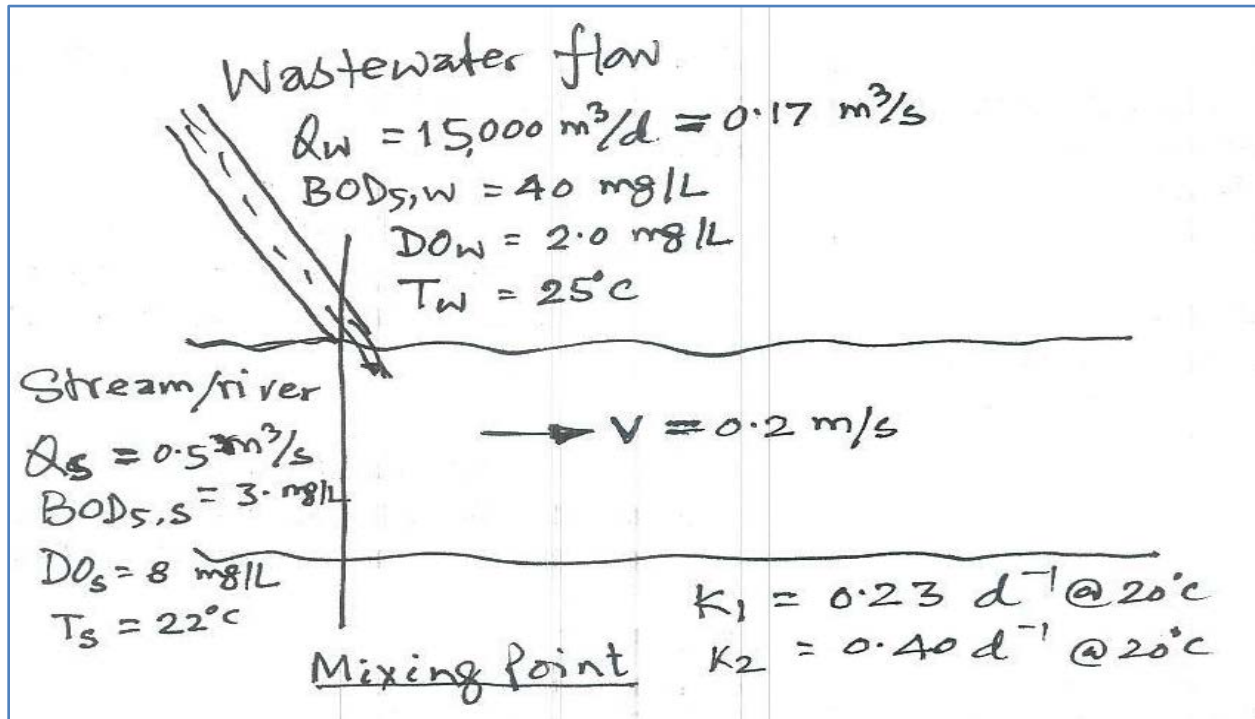 Wastewater flow
Qw = 15,000 m³/d = 0.17 m³/s
BOD5,w = 40 mg/L
DOw = 2.0 mg/L
Tw = 25°C
Stream/river
Qs = 0.5 m³/s
BOD5,s = 3. mg/L
DOs = 8 mg/L
Ts = 22°C
V = 0.2 m/s
K1 = 0.23 d⁻¹ @ 20°C
K2 = 0.40 d⁻¹ @ 20°C
Mixing Point